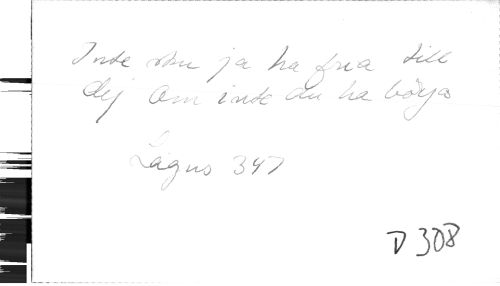 Inte sku ja ha fria till
dej om inte du ha börja
Lagus 347
D 308